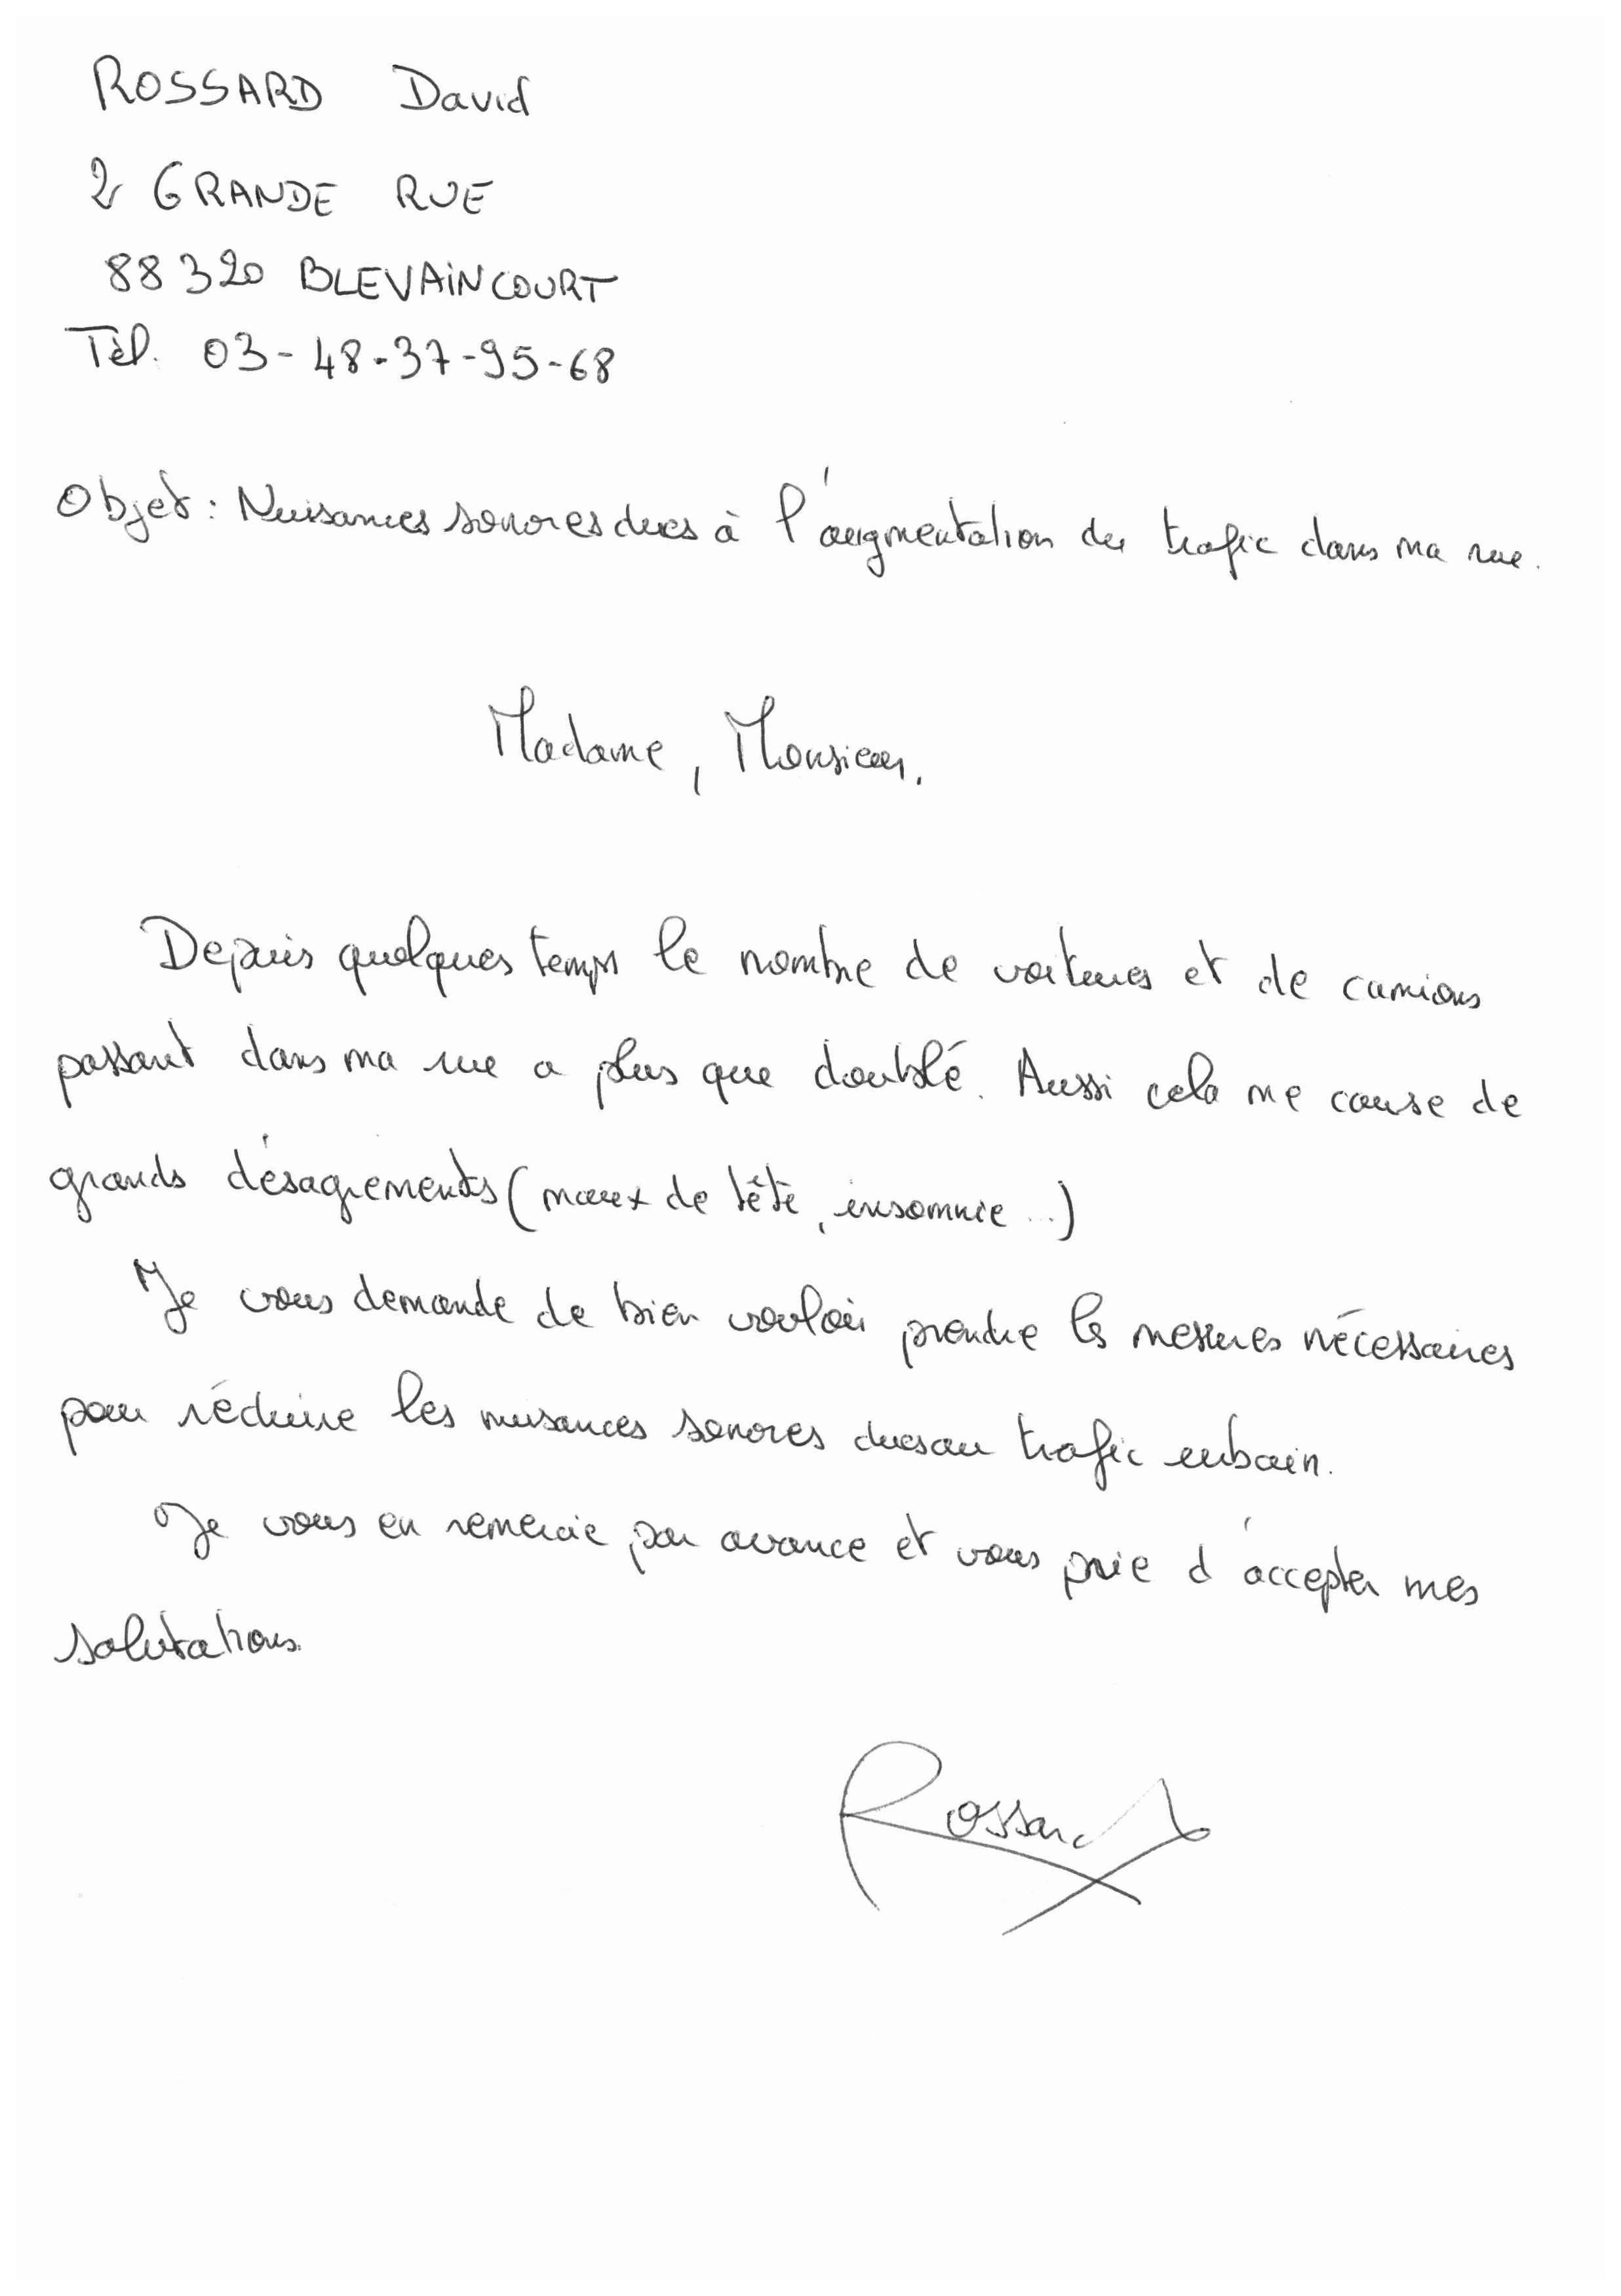 ROSSARD David
2 GRANDE RUE
88320 BLEVAINCOURT
Tèl. 03-48-37-95-68
Objet : Nuisances sonores dues à l'augmentation du trafic dans ma rue.
Madame, Monsieur.
Depuis quelques temps le nombre de voitures et de camions
passant dans ma rue a plus que doublé. Aussi cela me cause de
grands désagrements (maux de tête, insomnie ...)
Je vous demande de bien vouloir prendre les mesures nécessaires
pour réduire les nuisances sonores dues au trafic urbain.
Je vous en remercie par avance et vous prie d'accepter mes
salutations.
Rossard